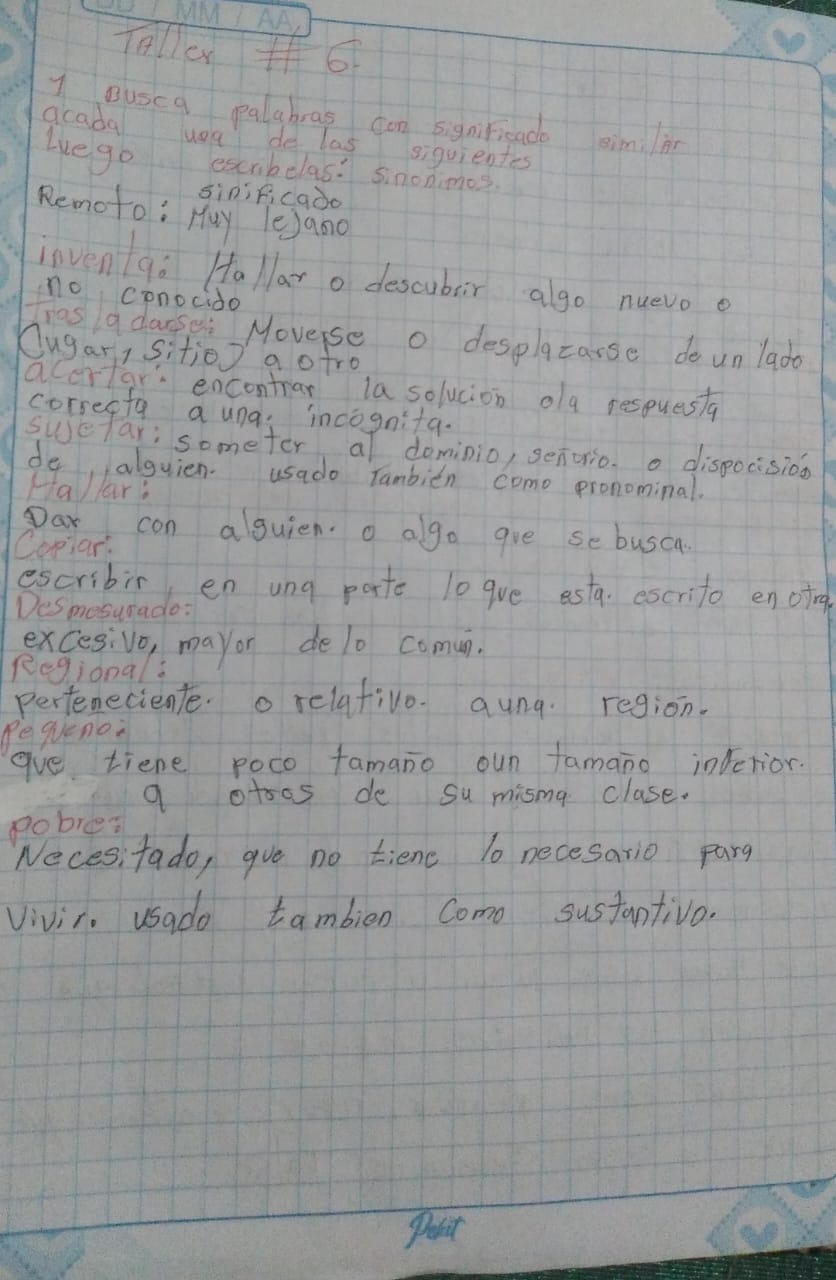 DD / MM / AA
Taller # 6
1 Busca palabras con significado similar
acada una de las siguientes
Luego escribelas: sinonimos.
sinificado
Remoto: Muy lejano
inventa: Hallar o descubrir algo nuevo o
no conocido
Trasladarse: Moverse o desplazarse de un lado
(lugar, sitio) a otro
acertar: encontrar la solución ola respuesta
correcta a una. incógnita.
sujetar: someter al dominio, señorio. o dispocisión
de alguien. usado También como pronominal.
Hallar:
Dar con alguien. o algo que se busca.
Copiar:
escribir en una parte lo que esta. escrito en otra.
Desmosurado:
excesivo, mayor de lo común.
Regional:
perteneciente. o relativo. auna. región.
Pequeno:
que tiene poco tamaño oun tamaño inferior.
a otros de su misma clase.
pobre:
Necesitado, que no tiene lo necesario para
vivir. usado tambien como sustantivo.
Pekit